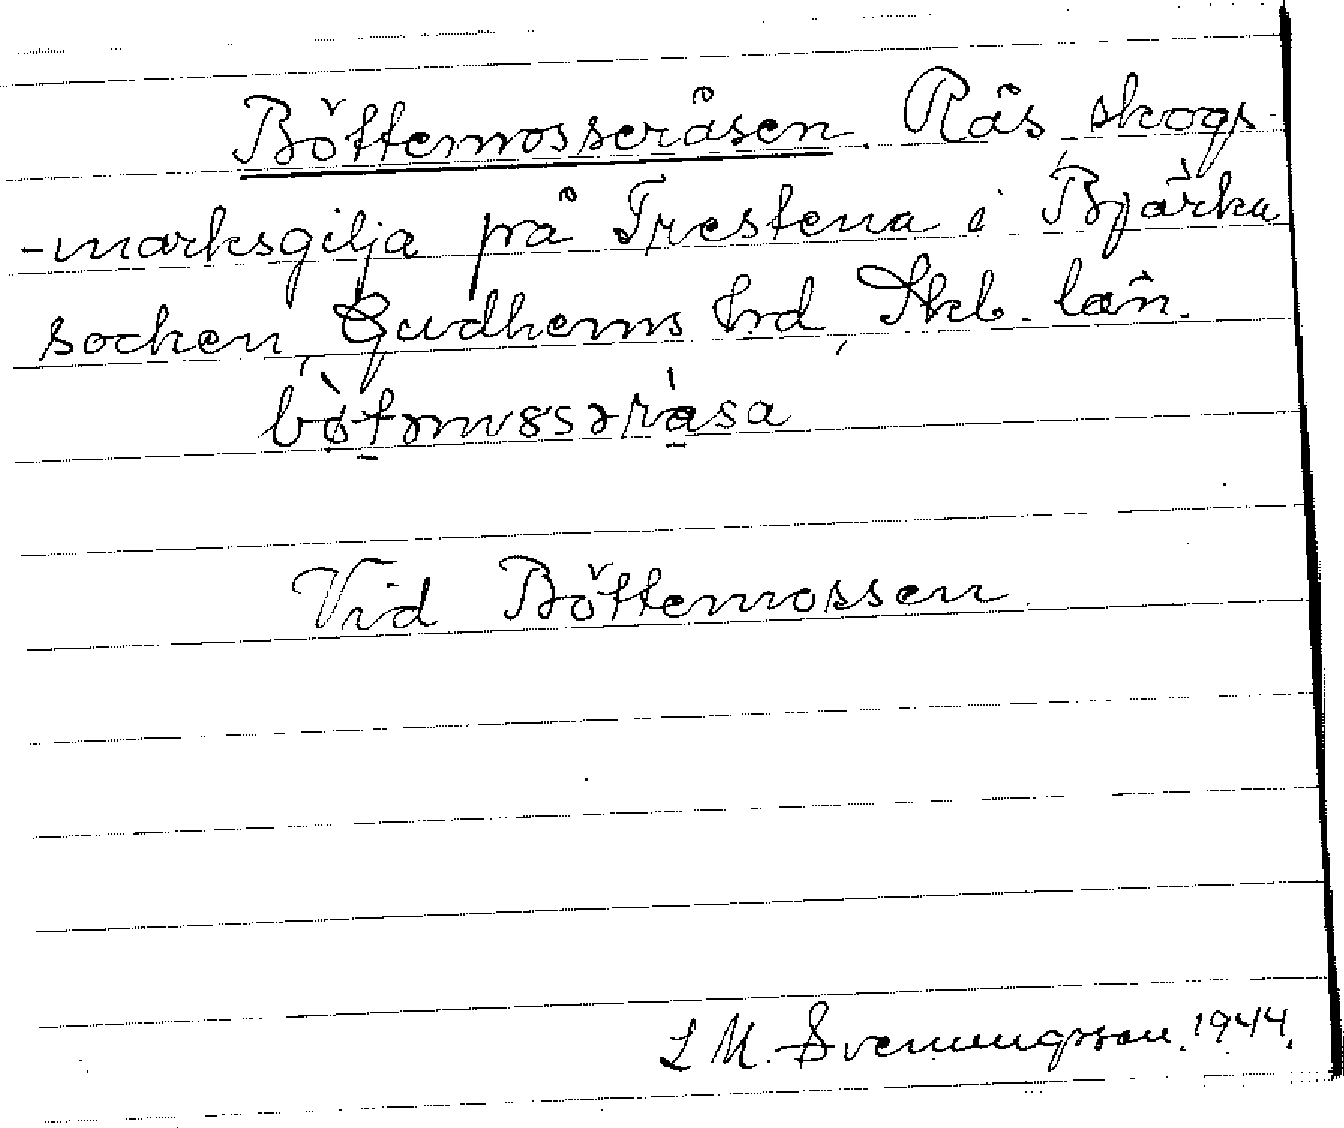 Böttemosseråsen. Rås, skogs-
-marksgilja på Trestena i Bjärka
socken, Gudhems hrd, Skb. län.
Vid Böttemossen
L M. Svenungsson. 1944.